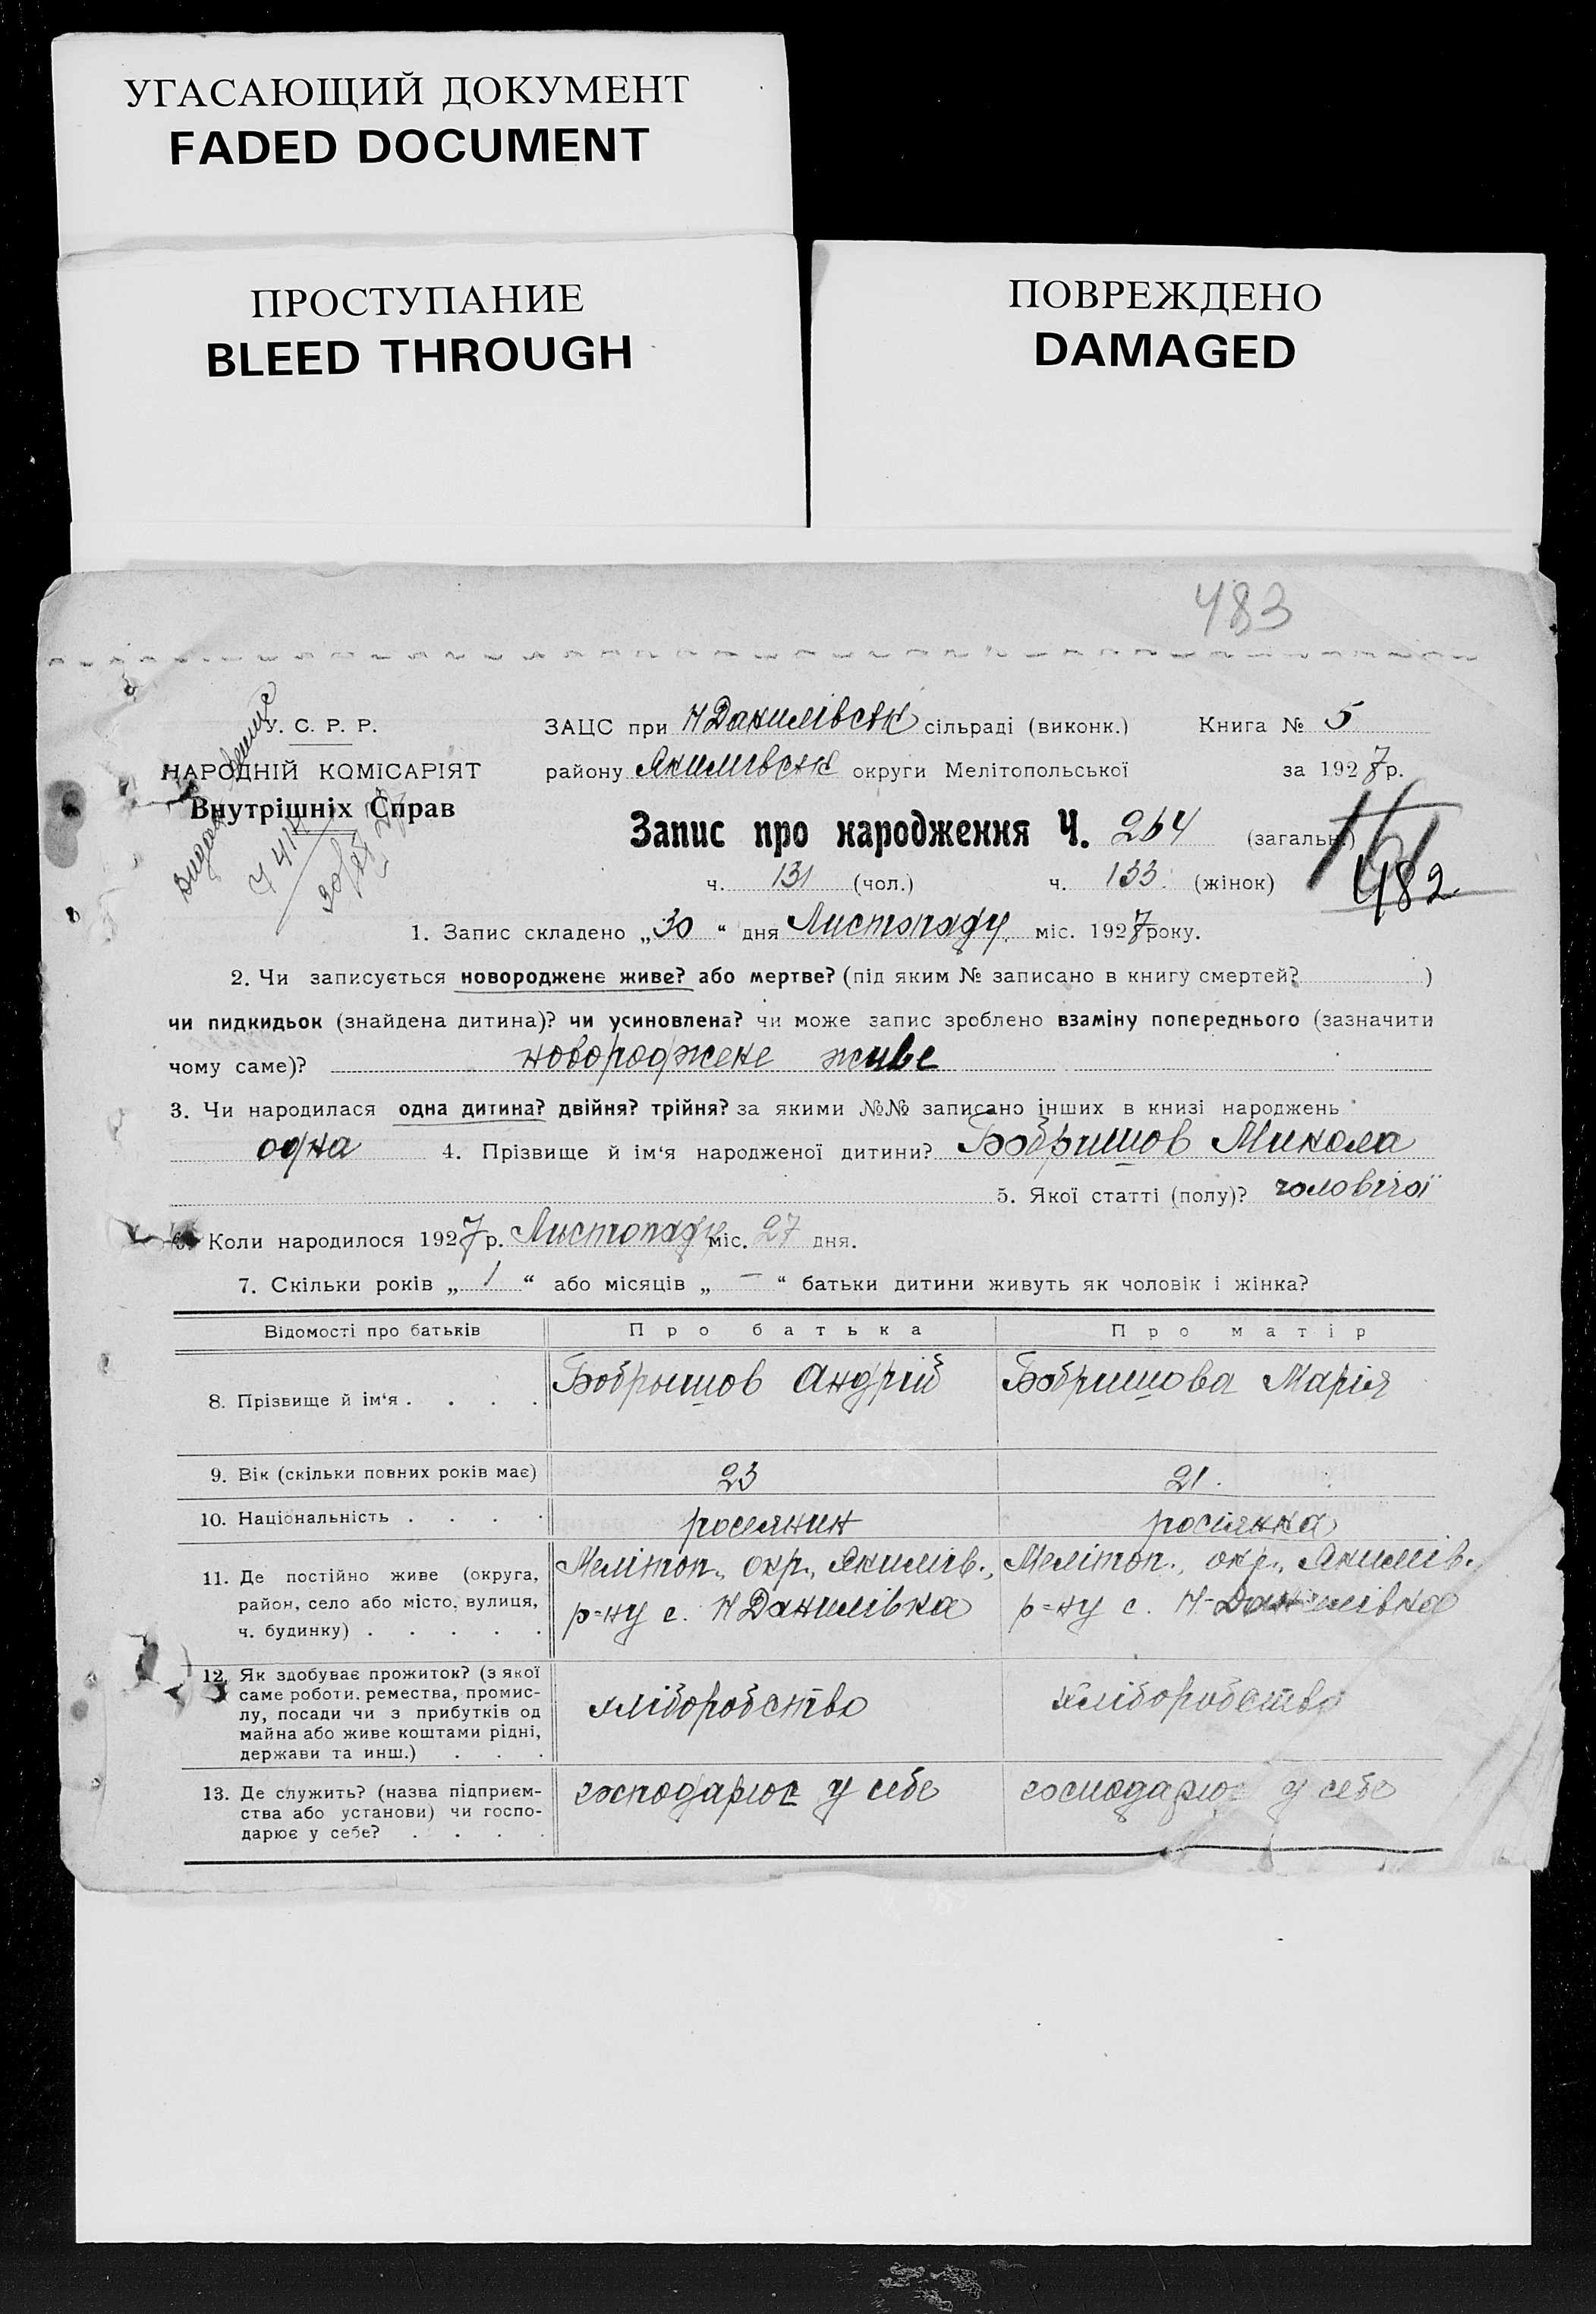 УГАСАЮЩИЙ ДОКУМЕНТ
FADED DOCUMENT
ПРОСТУПАНИЕ
BLEED THROUGH
ПОВРЕЖДЕНО
DAMAGED
483
У. С. Р. Р.
НАРОДНІЙ КОМІСАРІЯТ
Внутрішніх Справ
ЗАЦС при Н Данилівськ сільраді (виконк.) Книга № 5
району Якимівськ округи Мелітопольської за 1927 р.
Запис про народження Ч. 264 (загальн.)
482
ч. 131 (чол.) ч. 133 (жінок)
1. Запис складено „30“ дня Листопаду міс. 1927 року.
2. Чи записується новороджене живе? або мертве? (під яким № записано в книгу смертей? )
чи пидкидьок (знайдена дитина)? чи усиновлена? чи може запис зроблено взаміну попереднього (зазначити
чому саме)? новороджене живе
3. Чи народилася одна дитина? двійня? трійня? за якими №№ записано інших в книзі народжень
одна 4. Прізвище й ім‘я народженої дитини? Бобришов Микола
5. Якої статті (полу)? чоловічої
6. Коли народилося 1927 р. Листопаду міс. 27 дня.
7. Скільки років „ 1 “ або місяців „ — “ батьки дитини живуть як чоловік і жінка?
Відомості про батьків Про батька Про матір
8. Прізвище й ім‘я . . . . Бобрышов Андрій Бобришова Марія
9. Вік (скільки повних років має) 23 21.
10. Національність . . . . роселянин росіянка
11. Де постійно живе (округа, Мелітоп., окр., Якимів., Мелітоп., окр., Якимів.
район, село або місто, вулиця, р=ну с. Н Данилівка р=ну с. Н-Данилівка
ч. будинку) . . . . .
12. Як здобуває прожиток? (з якої
саме роботи. ремества, промис-
лу, посади чи з прибутків од хліборобство хліборобство
майна або живе коштами рідні,
держави та инш.) . . .
13. Де служить? (назва підприєм- господарює у себе господарює у себе
ства або установи) чи госпо-
дарює у себе? . . . .